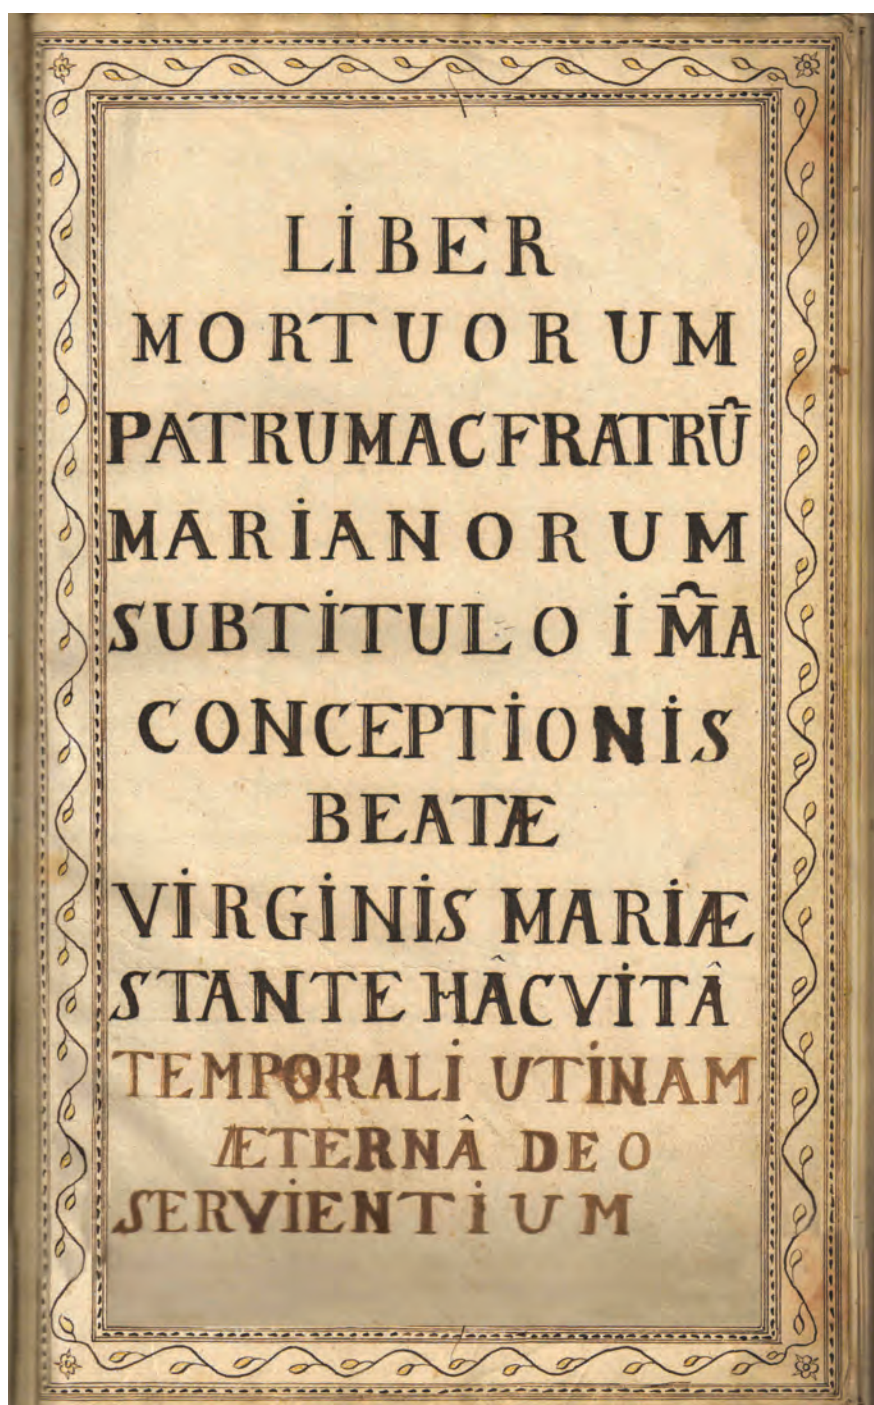 LİBER
MORTUORUM
PATRUM AC FRATRȖ
MARİANORUM
SUB TİTULO İM̑A
CONCEPTİONİS
BEATÆ
VİRGİNİS MARİÆ
STANTE HÂC VİTÂ
TEMPORALİ UTİNAM
ÆTERNÂ DEO
SERVİENTİUM